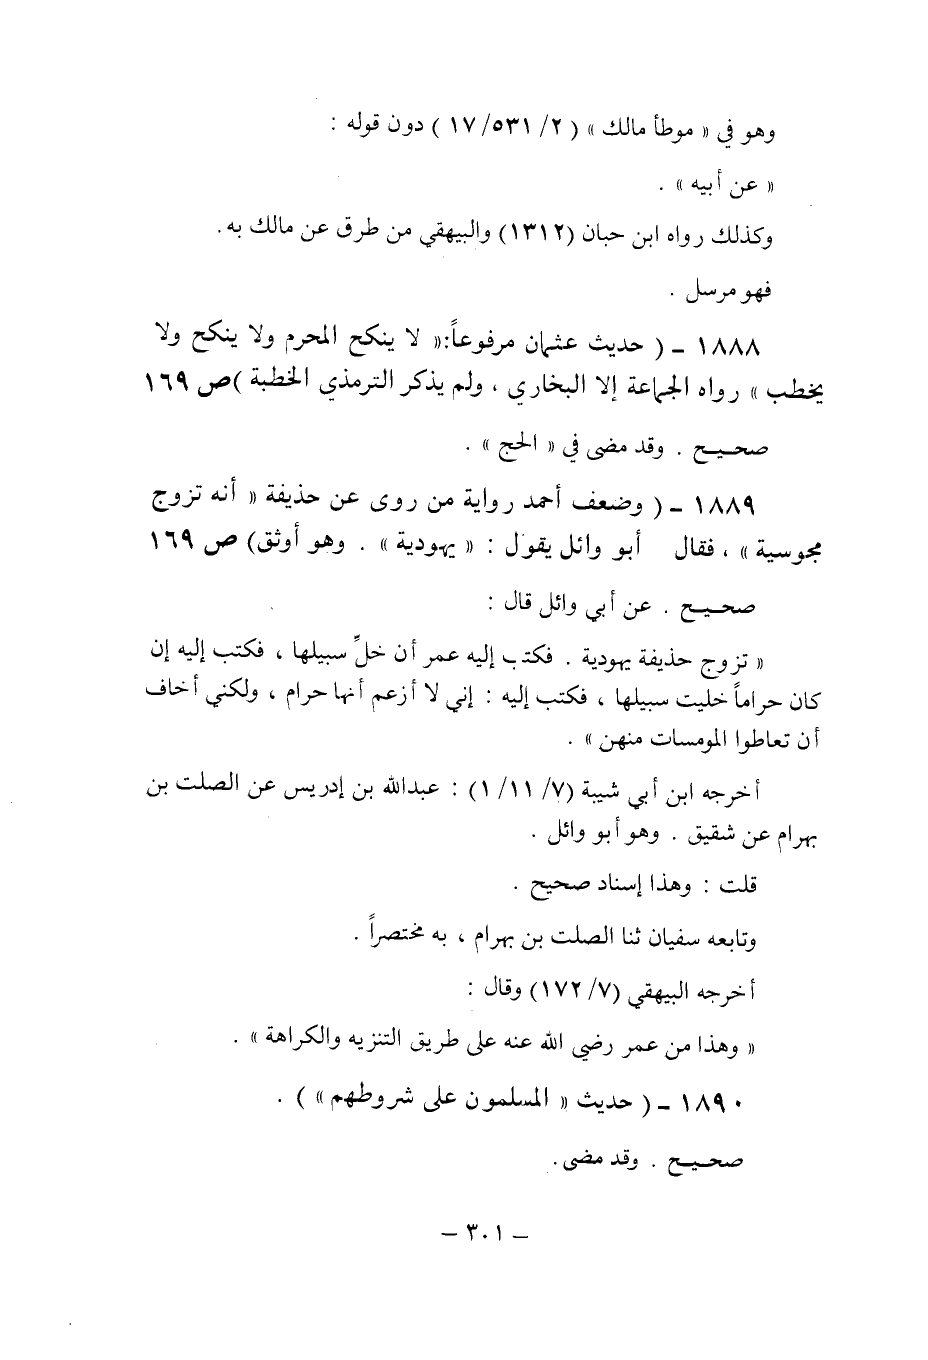 وهو في « موطأ مالك » ( ٢/ ٥٣١/ ١٧ ) دون قوله :
« عن أبيه » .
وكذلك رواه ابن حبان (١٣١٢) والبيهقي من طرق عن مالك به.
فهو مرسل .
١٨٨٨ - ( حديث عثمان مرفوعاً:« لا ينكح المحرم ولا ينكح ولا
يخطب » رواه الجماعة إلا البخاري ، ولم يذكر الترمذي الخطبة )ص ١٦٩
صحيح . وقد مضى في « الحج » .
١٨٨٩ - ( وضعف أحمد رواية من روى عن حذيفة « أنه تزوج
مجوسية » ، فقال أبو وائل يقول : « يهودية » . وهو أوثق) ص ١٦٩
صحيح . عن أبي وائل قال :
« تزوج حذيفة يهودية . فكتب إليه عمر أن خلِّ سبيلها ، فكتب إليه إن
كان حراماً خليت سبيلها ، فكتب إليه : إني لا أزعم أنها حرام ، ولكني أخاف
أن تعاطوا المومسات منهن » .
أخرجه ابن أبي شيبة (٧/ ١١/ ١) : عبدالله بن إدريس عن الصلت بن
بهرام عن شقيق . وهو أبو وائل .
قلت : وهذا إسناد صحيح .
وتابعه سفيان ثنا الصلت بن بهرام ، به مختصراً .
أخرجه البيهقي (٧/ ١٧٢) وقال :
« وهذا من عمر رضي الله عنه على طريق التنزيه والكراهة » .
١٨٩٠ - ( حديث « المسلمون على شروطهم » ) .
صحيح . وقد مضى.
– ٣٠١ –